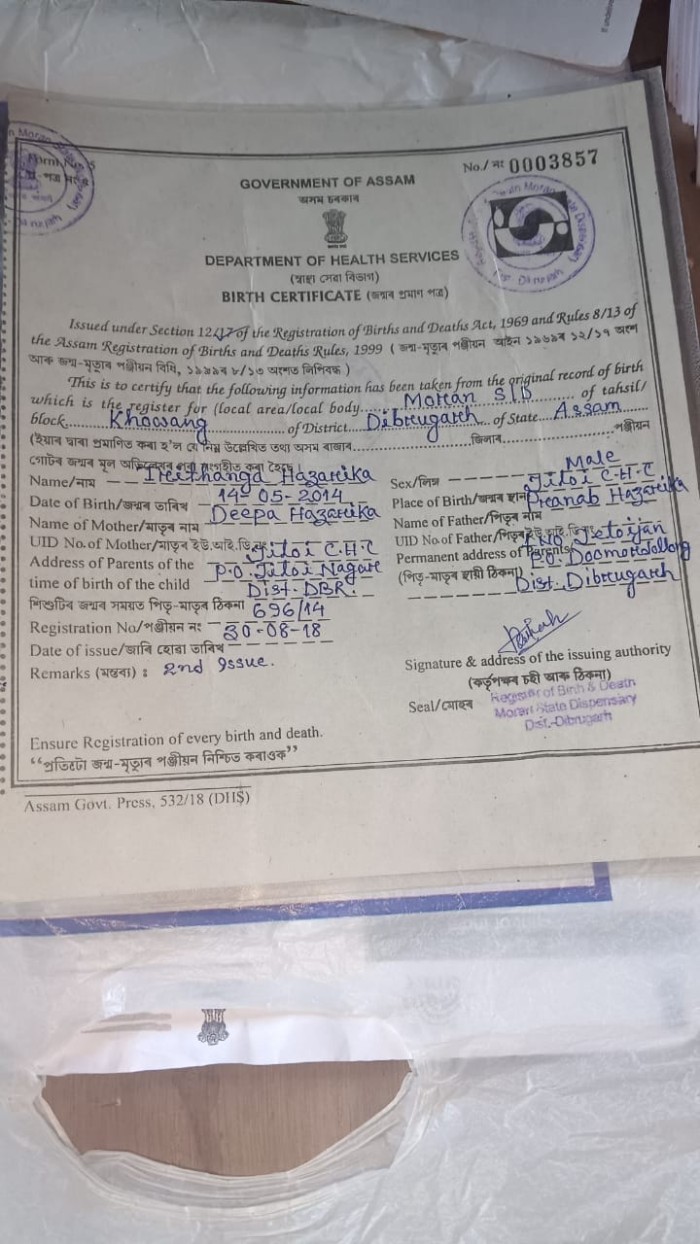 No./নং 0003857
GOVERNMENT OF ASSAM
অসম চৰকাৰ
DEPARTMENT OF HEALTH SERVICES
(স্বাস্থ্য সেৱা বিভাগ)
BIRTH CERTIFICATE (জন্মৰ প্ৰমাণ পত্ৰ)
Issued under Section 12/17 of the Registration of Births and Deaths Act, 1969 and Rules 8/13 of
the Assam Registration of Births and Deaths Rules, 1999 ( জন্ম-মৃত্যুৰ পঞ্জীয়ন আইন ১৯৬৯ৰ ১২/১৭ অংশ
আৰু জন্ম-মৃত্যুৰ পঞ্জীয়ন বিধি, ১৯৯৯ৰ ৮/১৩ অংশত লিপিবদ্ধ )
This is to certify that the following information has been taken from the original record of birth
which is the register for (local area/local body Moran S/D of tahsil/
block Khowang of District Dibrugarh of State Assam
(ইয়াৰ দ্বাৰা প্ৰমাণিত কৰা হ'ল যে নিম্ন উল্লেখিত তথ্য অসম ৰাজ্যৰ জিলাৰ পঞ্জীয়ন
গোটৰ জন্মৰ মূল
Name/নাম Hazarika Sex/লিঙ্গ Male
Date of Birth/জন্মৰ তাৰিখ 14-05-2014 Place of Birth/জন্মৰ স্থান C.H.C
Name of Mother/মাতৃৰ নাম Deepa Hazarika Name of Father/পিতৃৰ নাম Pranab Hazarika
UID No. of Mother/মাতৃৰ ইউ.আই.ডি. UID No. of Father/পিতৃৰ
Address of Parents of the C.H.C Permanent address of Parents
time of birth of the child P.O. Nagar Dist-DBR. (পিতৃ-মাতৃৰ স্থায়ী ঠিকনা) P.O. Dist. Dibrugarh
শিশুটিৰ জন্মৰ সময়ত পিতৃ-মাতৃৰ ঠিকনা
Registration No/পঞ্জীয়ন নং 696/14
Date of issue/জাৰি হোৱা তাৰিখ 30-08-18
Remarks (মন্তব্য) : 2nd Issue.
Signature & address of the issuing authority
(কৰ্তৃপক্ষৰ চহী আৰু ঠিকনা)
Seal/মোহৰ Registrar of Birth & Death
Moran State Dispensary
Dist.-Dibrugarh
Ensure Registration of every birth and death.
“প্ৰতিটো জন্ম-মৃত্যুৰ পঞ্জীয়ন নিশ্চিত কৰাওক”
Assam Govt. Press, 532/18 (DHS)